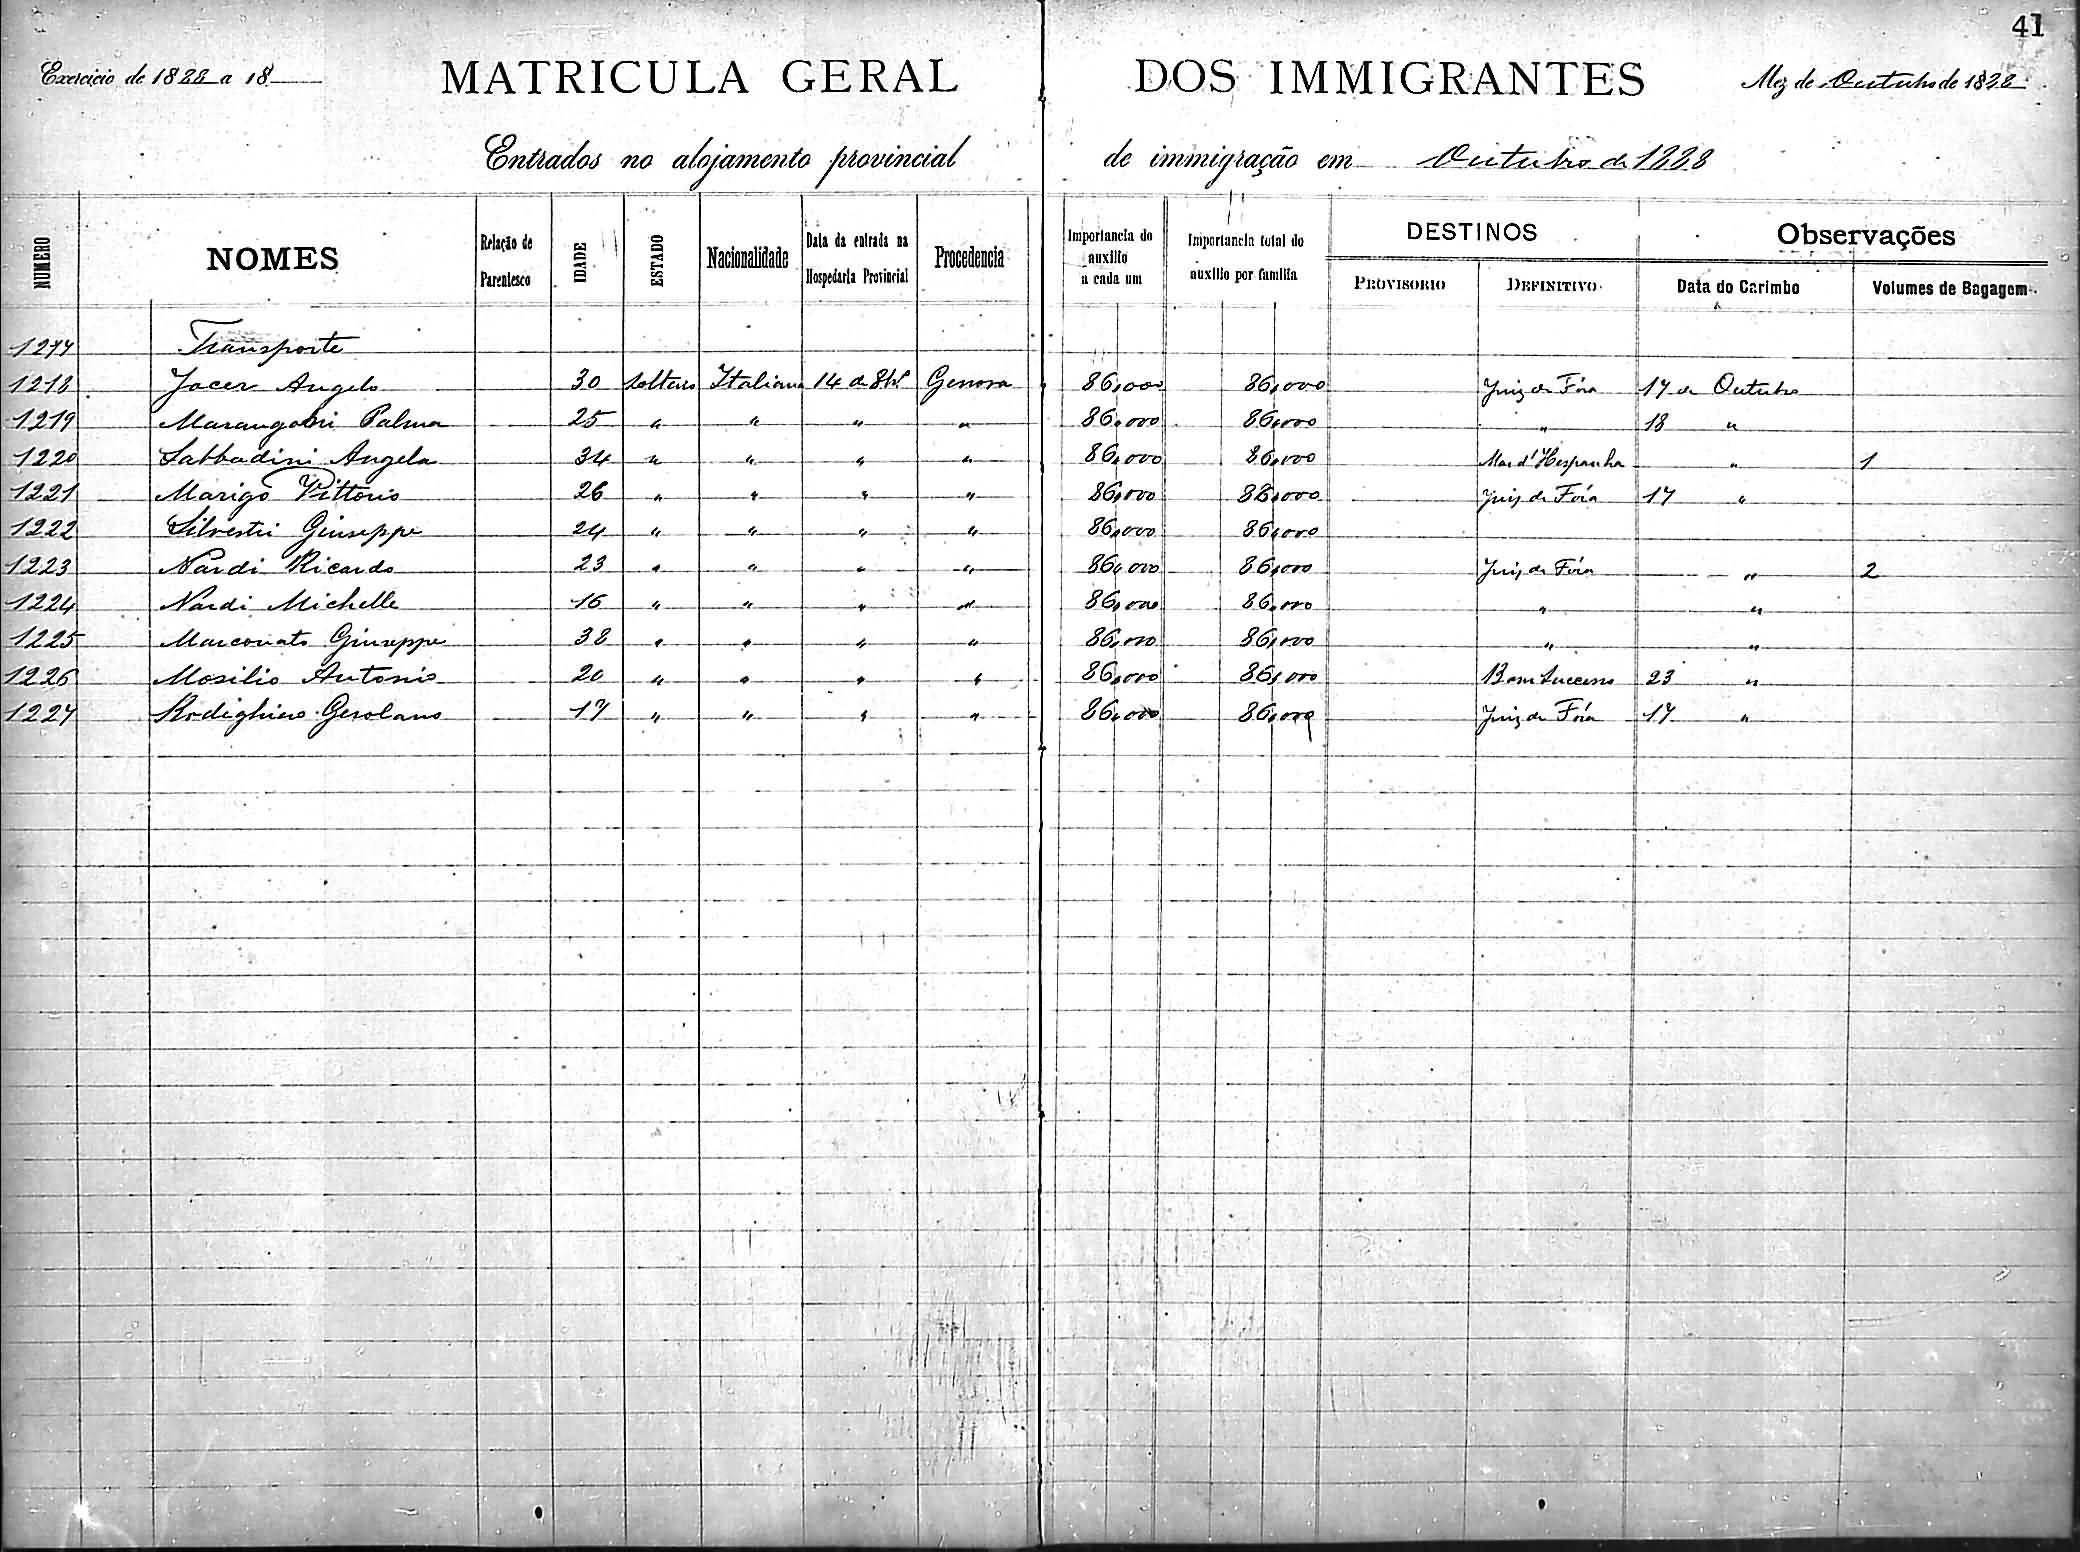 41
Exercicio de 1888 a 18
MATRICULA GERAL DOS IMMIGRANTES
Mez de Outubro de 1888
Entrados no alojamento provincial de immigração em Outubro de 1888
NUMERO NOMES Relação de Parentesco IDADE ESTADO Nacionalidade Data da entrada na Hospedaria Provincial Procedencia Importancia do auxilio a cada um Importancia total do auxilio por familia DESTINOS PROVISORIO DEFINITIVO Observações Data do Carimbo Volumes de Bagagem
1217 Transporte
1218 Jacer Angelo 30 solteiro Italiana 14 de 8bro Genova 86,000 86,000 Juiz de Fóra 17 de Outubro
1219 Marangoni Palma 25 " " " " 86,000 86,000 " 18 "
1220 Sabbadini Angela 34 " " " " 86,000 86,000 Mar d'Hespanha " 1
1221 Marigo Vittorio 26 " " " " 86,000 86,000 Juiz de Fóra 17 "
1222 Silvestri Giuseppe 24 " " " " 86,000 86,000
1223 Nardi Ricardo 23 " " " " 86,000 86,000 Juiz de Fóra " 2
1224 Nardi Michelle 16 " " " " 86,000 86,000 " "
1225 Marconato Giuseppe 38 " " " " 86,000 86,000 " "
1226 Mosilio Antonio 20 " " " " 86,000 86,000 Bom Successo 23 "
1227 Rodighiero Gerolamo 17 " " " " 86,000 86,000 Juiz de Fóra 17 "